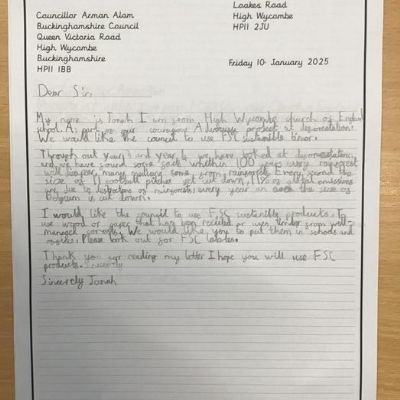 Loakes Road
High Wycombe
HP11 2JU
Councillor Arman Alam
Buckinghamshire Council
Queen Victoria Road
High Wycombe
Buckinghamshire
HP11 1BB
Friday 10 January 2025
Dear Sir,
My name is Jonah I am from High Wycombe church of England
school. As part of our courageous Advocacy project is deforestation.
We would like the council to use FSC
Through out year 5 and year 6 we have looked at deforestation,
and we have found some facts whithin 100 years every rainforest
will
size of 11 football pitches get cut down, 11% of global emissions
are due to of rainforests every year an area the size of
Belgium is cut down.
I would like the council to use FSC sustainbly products. To
use wood or paper that has been recycled or under from well-
managed forests. We would like you to put them in schools and
Please look out for FSC lables.
Thank you for reading my letter I hope you will use FSC
products.
Sincerely Jonah